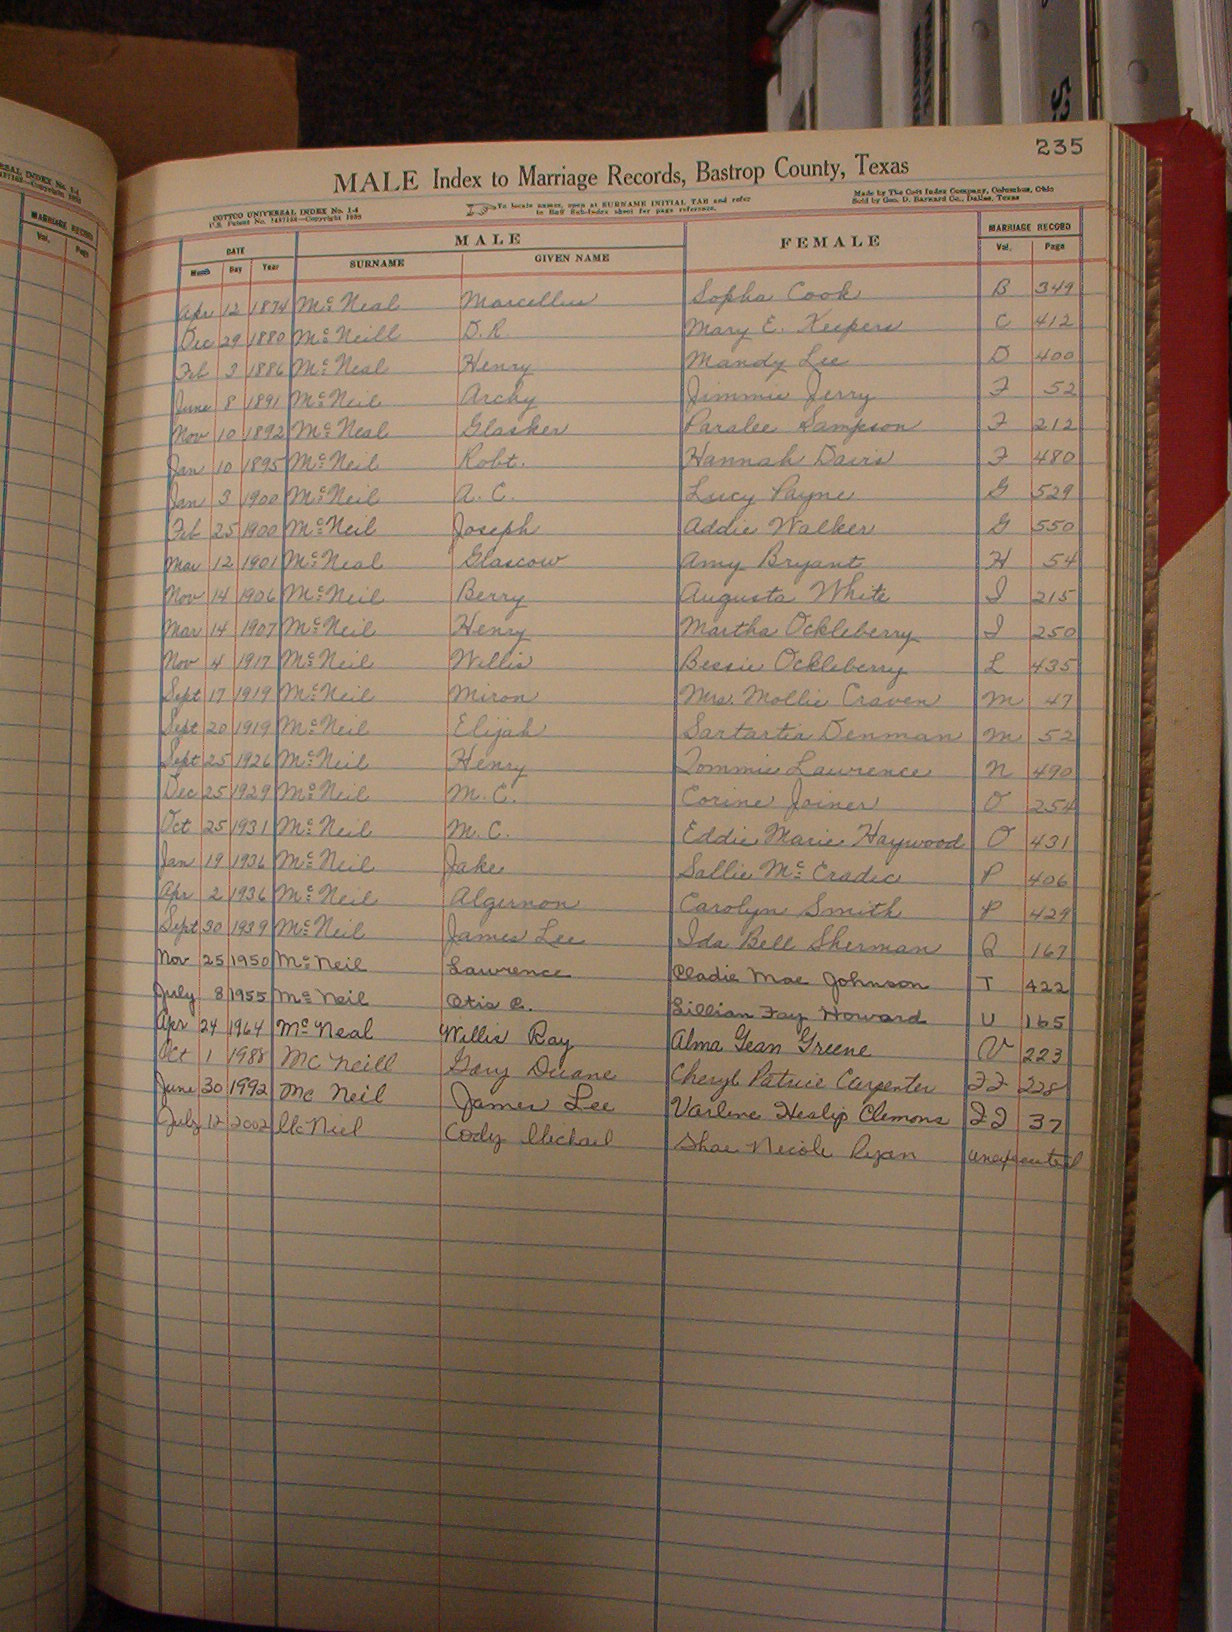 235
MALE Index to Marriage Records, Bastrop County, Texas
COTTCO UNIVERSAL INDEX No. 1-4
To locate names, open at SURNAME INITIAL TAB and refer
to Buff Sub-Index sheet for page reference.
Made by The Cott Index Company, Columbus, Ohio
Sold by Geo. D. Barnard Co., Dallas, Texas
DATE MALE FEMALE MARRIAGE RECORD
Month Day Year SURNAME GIVEN NAME Vol. Page
Apr 12 1874 McNeal Marcellus Sopha Cook B 349
Dec 29 1880 McNeill D.R. Mary E. Keepers C 412
Feb 3 1886 McNeal Henry Mandy Lee D 400
June 8 1891 McNeil Archy Jimmie Jerry F 52
Nov 10 1892 McNeal Glasker Paralee Sampson F 212
Jan 10 1895 McNeil Robt. Hannah Davis F 480
Jan 3 1900 McNeil A. C. Lucy Payne G 529
Feb 25 1900 McNeil Joseph Addie Walker G 550
Mar 12 1901 McNeal Glascow Amy Bryant H 54
Nov 14 1906 McNeil Berry Augusta White I 215
Mar 14 1907 McNeil Henry Martha Ockleberry I 250
Nov 4 1917 McNeil Willis Bessie Ockleberry L 435
Sept 17 1919 McNeil Miron Mrs. Mollie Craven M 47
Sept 20 1919 McNeil Elijah Sartartia Denman M 52
Sept 25 1926 McNeil Henry Tommie Lawrence N 490
Dec 25 1929 McNeil M. C. Corine Joiner O 254
Oct 25 1931 McNeil M. C. Eddie Marie Haywood O 431
Jan 19 1936 McNeil Jake Sallie McCradic P 406
Apr 2 1936 McNeil Algernon Carolyn Smith P 429
Sept 30 1939 McNeil James Lee Ida Bell Sherman Q 167
Nov 25 1950 McNeil Lawrence Cladie Mae Johnson T 422
July 8 1955 McNeil Otis C. Lillian Fay Howard U 165
Apr 24 1964 McNeal Willie Ray Alma Gean Greene V 223
Oct 1 1988 McNeill Gary Duane Cheryl Patrice Carpenter 228
June 30 1992 McNeil James Lee Varlene Heslip Clemons 37
July 12 2002 McNiel Cody Michael Shae Nicole Ryan unexecuted
MARRIAGE RECORD
Vol. Page